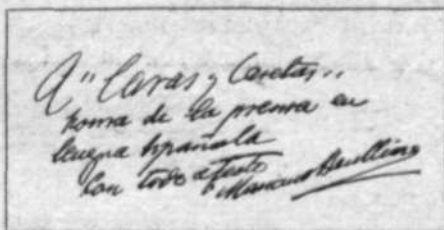 A "Caras y Caretas"
honra de la prensa en
lengua española
con todo afecto
Mariano Benlliure